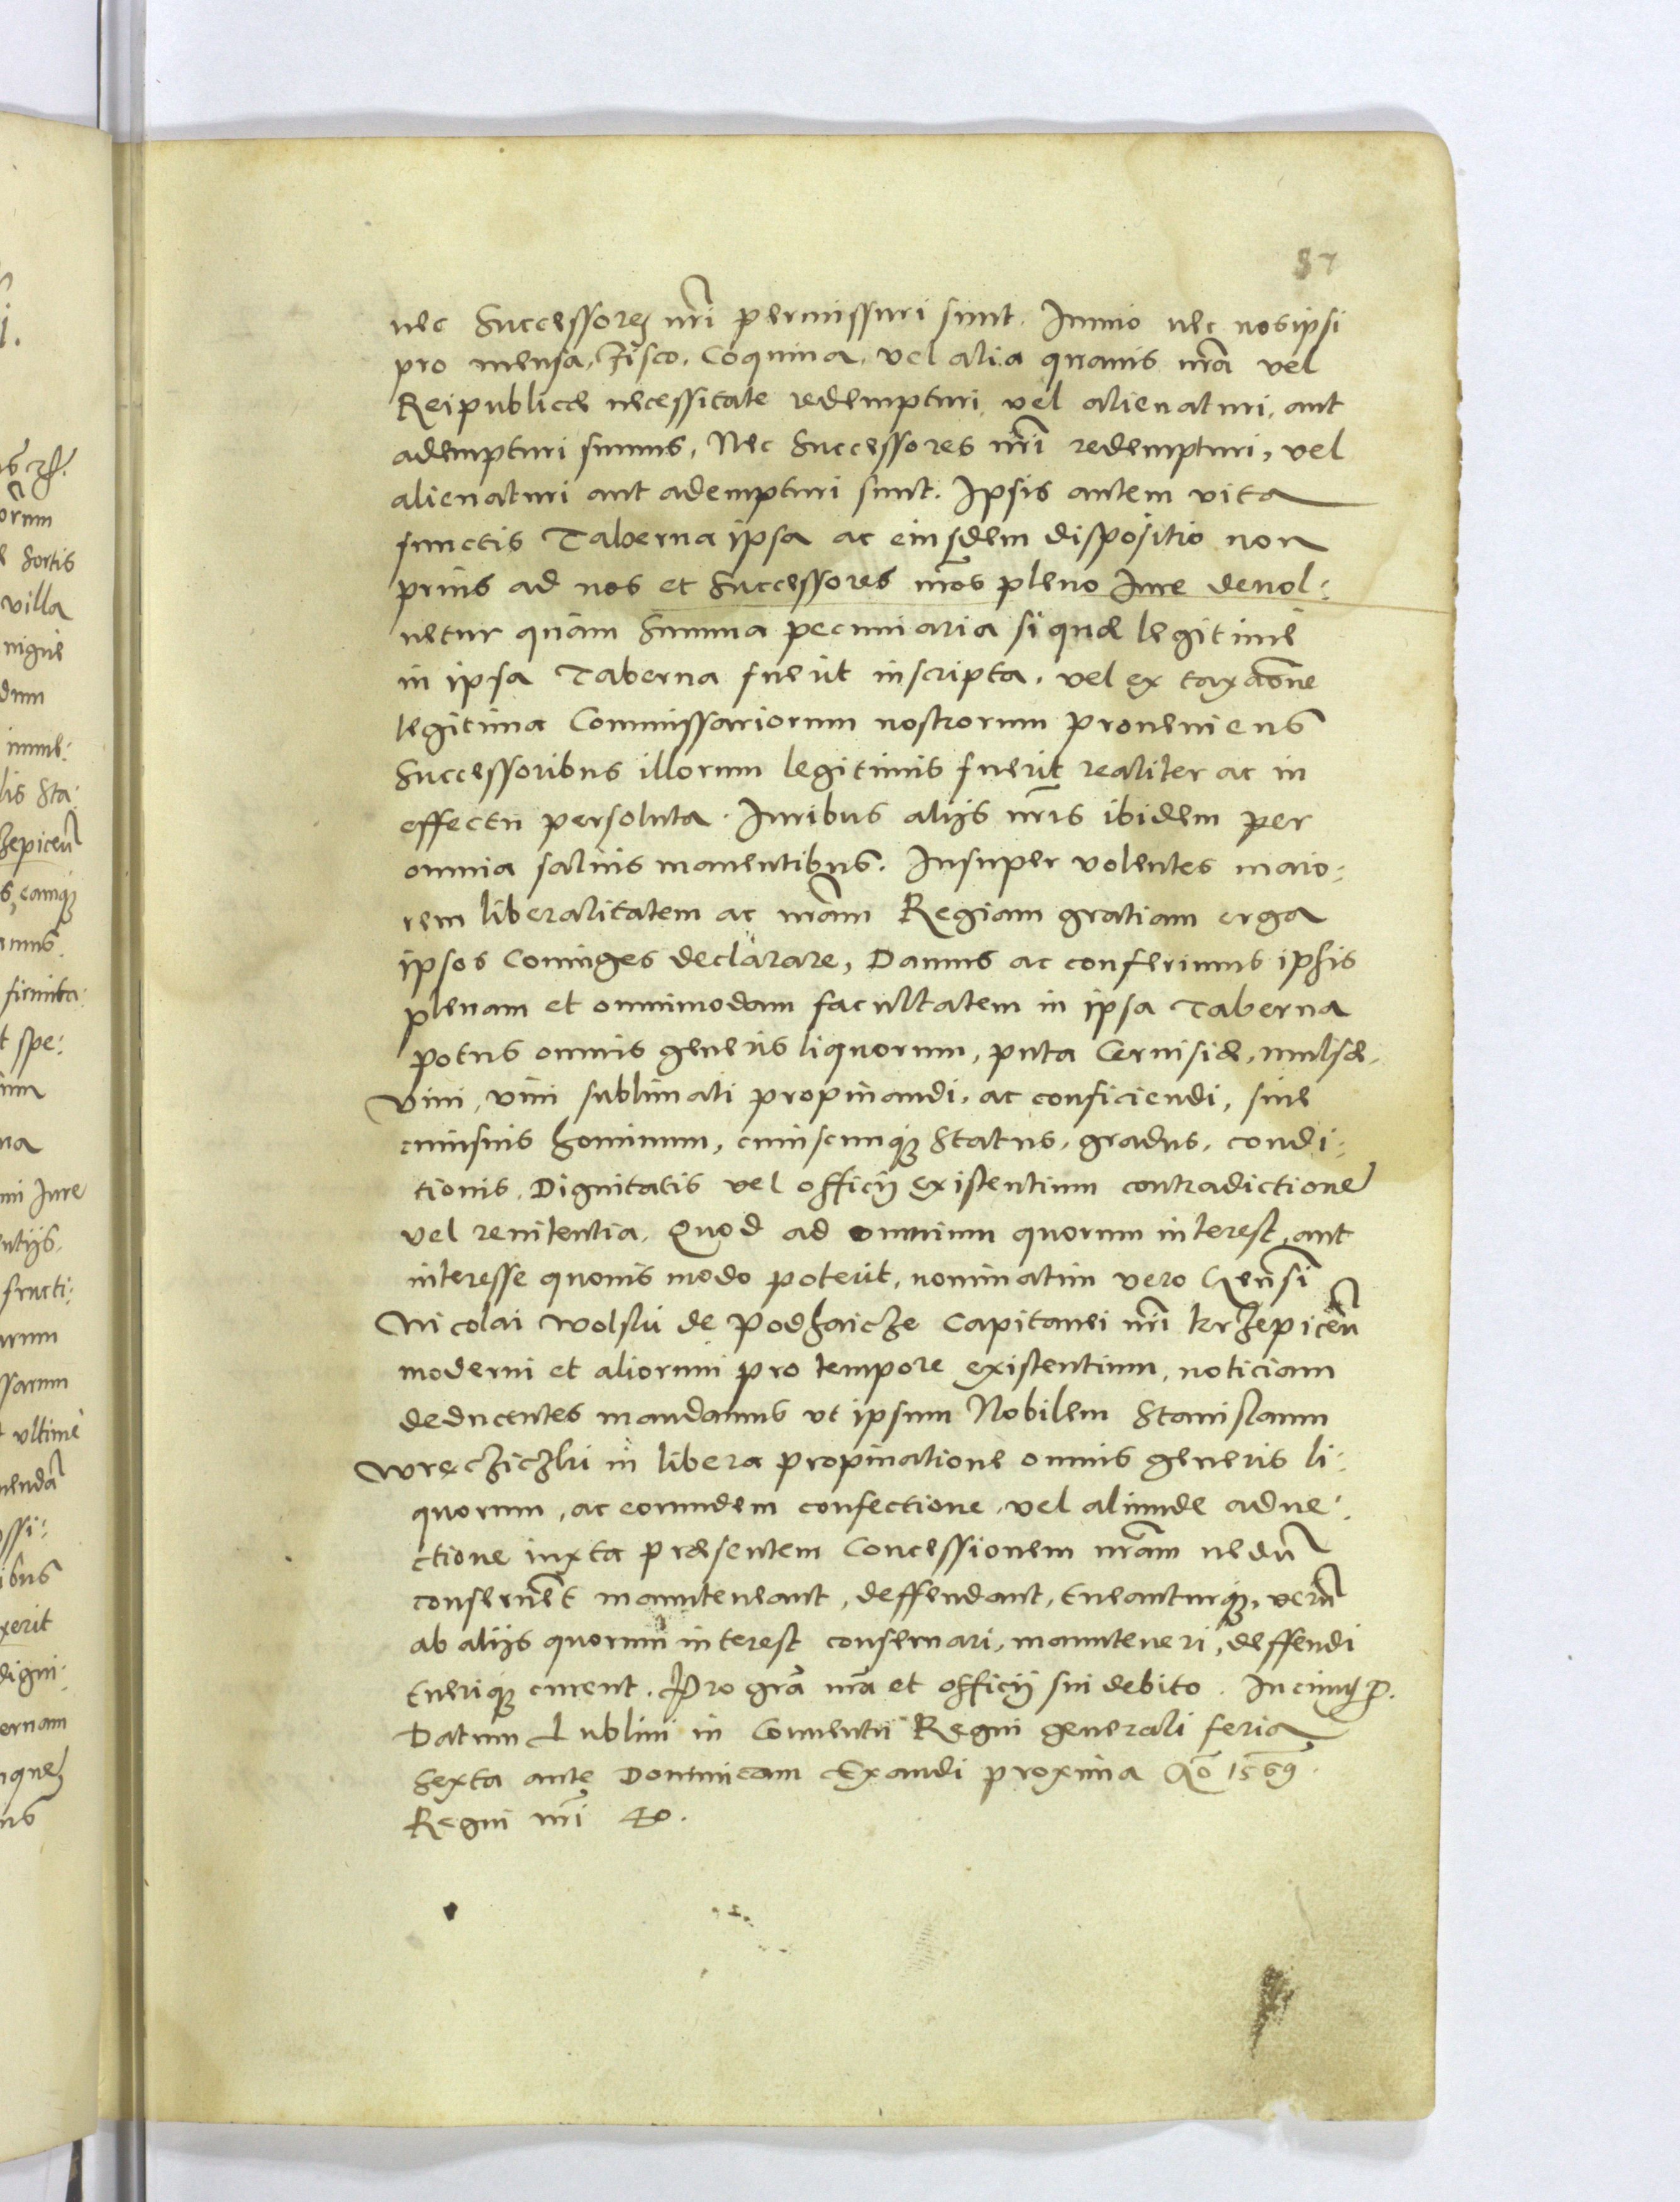 87
nec Successores nr̃i permissuri sunt. Immo nec nosipsi
pro mensa, Fisco, Coquina, vel alia quauis nr̃a vel
Reipublicæ necessitate redempturi vel alienaturi, aut
adempturi sumus, Nec Successores nr̃i redempturi, vel
alienaturi aut adempturi sunt. Ipsis autem vita
functis Taberna ipsa ac eiusdem dispositio non
prius ad nos et Successores nr̃os pleno Iure deuol:
uetur quàm Summa pecuniaria si quæ legitimè
in ipsa Taberna fuerit inscripta, vel ex taxac̃one
legitima Commissariorum nostrorum proueniens
Successoribus illorum legitimis fuerit realiter ac in
effectu persoluta. Iuribus alijs nr̃is ibidem per
omnia saluis manentibus. Insuper volentes maio:
rem liberalitatem ac nr̃am Regiam gratiam erga
ipsos Coniuges declarare, Damus ac conferimus ipsis
plenam et omnimodam facultatem in ipsa Taberna
potus omnis generis liquorum, puta Ceruisiæ, mulsæ,
Vini, vini sublimati propinandi, ac conficiendi, sine
cuiusuis hominum, cuiuscunq; Status, gradus, condi:
tionis, Dignitatis vel officij existentium contradictione
vel renitentia. Quod ad omnium quorum interest, aut
interesse quouis modo poterit, nominatim vero Gen̄si
Nicolai Wolski de Podhaicze Capitanei nr̃i krzepiceñ
moderni et aliorum pro tempore existentium, noticiam
deducentes mandamus vt ipsum Nobilem Stanislaum
Wręcziczki in libera propinatione omnis generis li:
quorum, ac eorundem confectione, vel aliunde adue:
ctione iuxta præsentem Concessionem nr̃am nedũ
conseruẽt manuteneant, deffendant, tueanturq;, verũ
ab alijs quorum interest conseruari, manuteneri, deffendi
tueriq; curent. Pro gr̃a nr̃a et officij sui debito. In cuius
Datum Lublini in Conuentu Regni generali feria
Sexta ante Dominicam Exaudi proxima Aõ 1569.
Regni nr̃i 40.